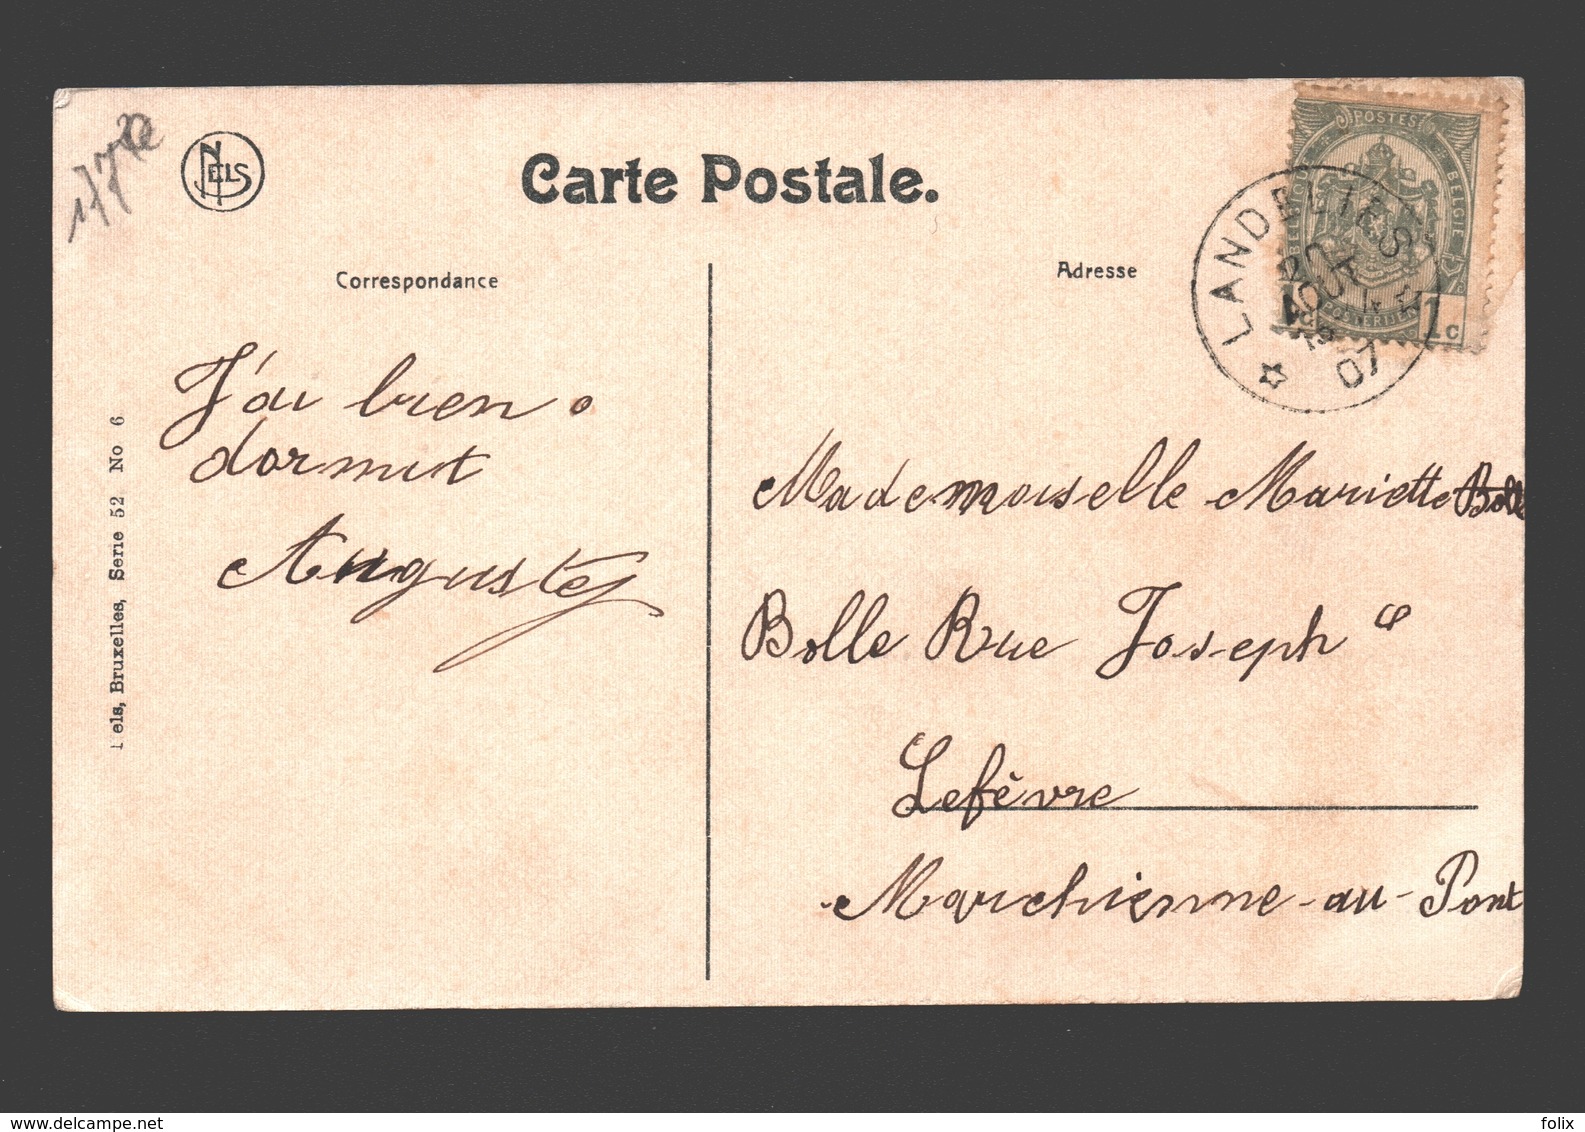 NELS
Carte Postale.
Correspondance
Adresse
POSTES
BELGIQUE
BELGIE
1c
1c
LANDELIES
AOUT
07
J'ai bien
dormit
Auguste
Mademoiselle Mariette Bolle
Bolle Rue Joseph
Lefèvre
Marchienne-au-Pont
els, Bruxelles, Serie 52 No 6
delcampe.net
folix